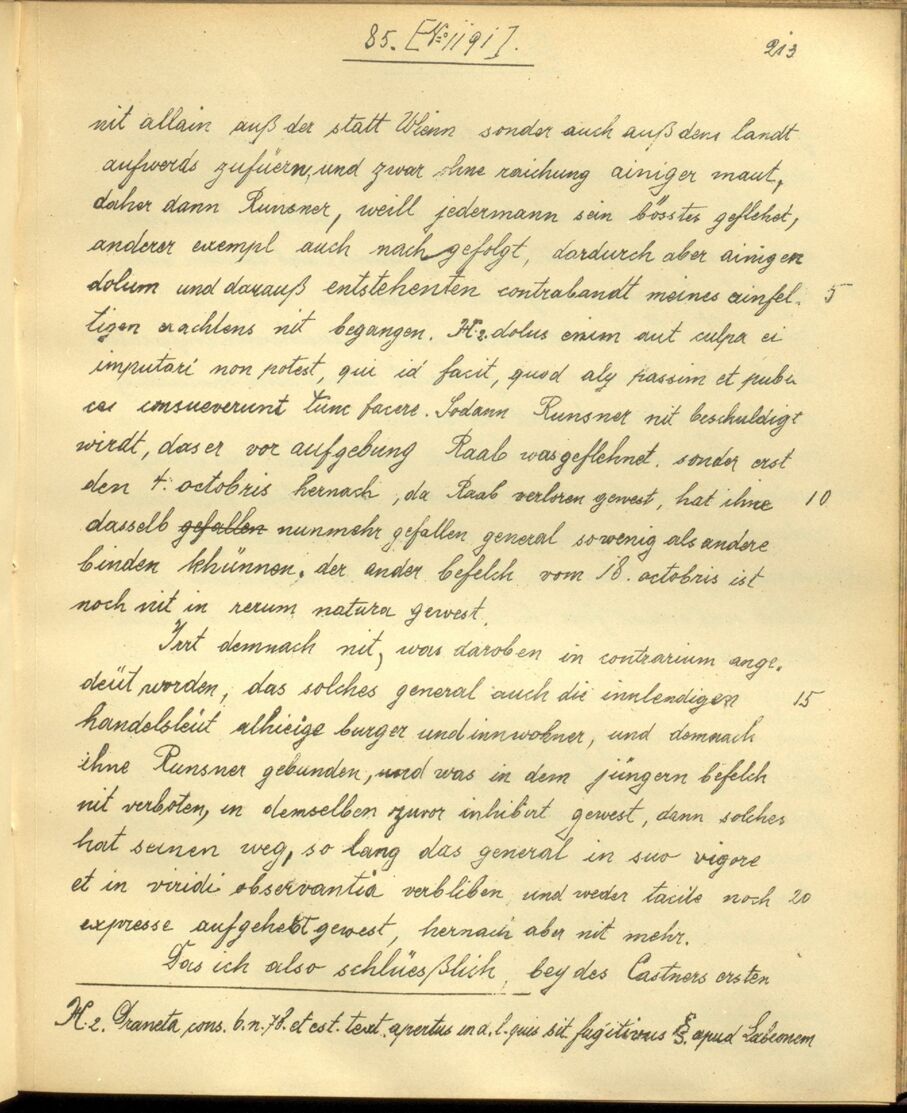 85. [No 1191].
213
nit allain auß der statt Wienn sonder auch auß dem landt
aufwerds zufüern, und zwar ohne raichung ainiger maut,
daher dann Runsner, weill jedermann sein bösstes geflehet,
anderer exempl auch nachgefolgt, dardurch aber ainigen
dolum und darauß entstehenten contrabandt meines einfel- 5
tigen erachtens nit begangen. H:2. dolus enim aut culpa ei
imputari non potest, qui id facit, quod aly passim et publi
ce consueverunt tunc facere. Sodann Runsner nit beschuldigt
wirdt, das er vor aufgebung Raab was geflehnet, sonder erst
den 4. octobris hernach, da Raab verloren gewest, hat ihne
10
dasselb gefallen nunmehr gefallen general sowenig als andere
binden khünnen. der ander befelch vom 18. octobris ist
noch nit in rerum natura gewest.
Irrt demnach nit, was daroben in contrarium ange-
deüt worden, das solches general auch die innlendigen 15
handelsleüt alhieige burger und innwohner, und demnach
ihne Runsner gebunden, und was in dem jüngern befelch
nit verboten, in demselben zuvor inhibirt gewest, dann solches
hat seinen weg, so lang das general in suo vigore
et in viridi observantia verbliben und weder tacite noch 20
expresse aufgehebt gewest, hernach aber nit mehr.
Das ich also schlüesßlich, bey des Castners ersten
H:2. Graneta, cons. 6. n. 78. et est. text. apertus in d. l. quis sit fugitivus §. apud Labeonem